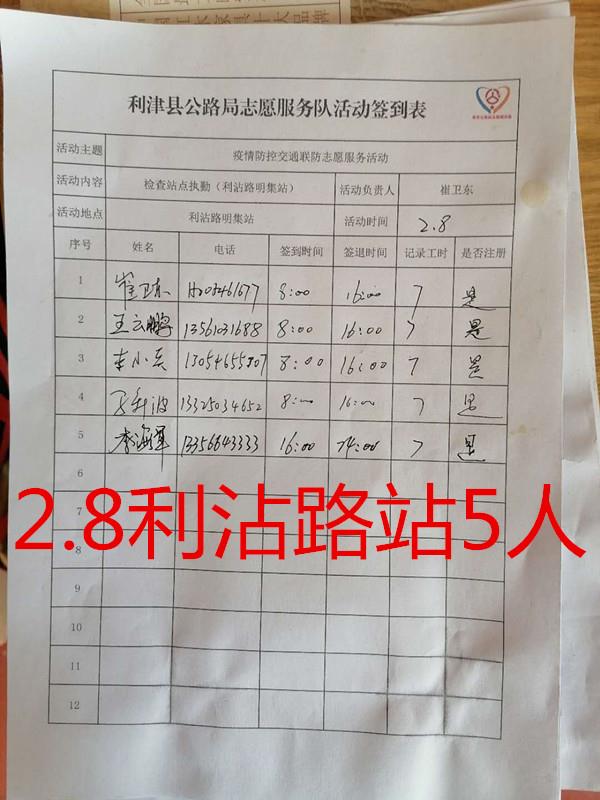 利津县公路局志愿服务队活动签到表
活动主题 疫情防控交通联防志愿服务活动
活动内容 检查站点执勤（利沾路明集站） 活动负责人 崔卫东
活动地点 利沾路明集站 活动时间 2.8
序号 姓名 电话 签到时间 签退时间 记录工时 是否注册
1 崔卫东 8:00 16:00 7 是
2 王云鹏 13561031688 8:00 16:00 7 是
3 车小兵 13054655807 8:00 16:00 7 是
4 13325034652 8:00 16:00 7 是
5 李海军 13356643333 16:00 24:00 7 是
6
7
2.8利沾路站5人
8
9
10
11
12